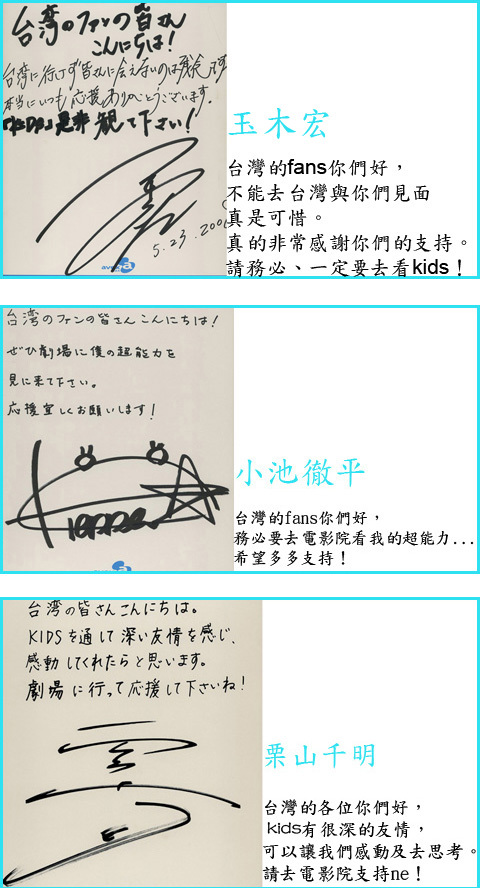 台湾のファンの皆さん
こんにちは!
台湾に行けず皆さんに会えないのは残念です
本当にいつも応援ありがとうございます。
『KIDS』是非観て下さい!
5.23.200
avex
玉木宏
台灣的fans你們好，
不能去台灣與你們見面
真是可惜。
真的非常感謝你們的支持。
請務必、一定要去看kids！
台湾のファンの皆さんこんにちは!
ぜひ劇場に僕の超能力を
見に来て下さい。
応援宜しくお願いします!
Teppei
小池徹平
台灣的fans你們好，
務必要去電影院看我的超能力...
希望多多支持！
台湾の皆さんこんにちは。
KIDSを通して深い友情を感じ、
感動してくれたらと思います。
劇場に行って応援して下さいね!
栗山千明
台灣的各位你們好，
kids有很深的友情，
可以讓我們感動及去思考。
請去電影院支持ne！